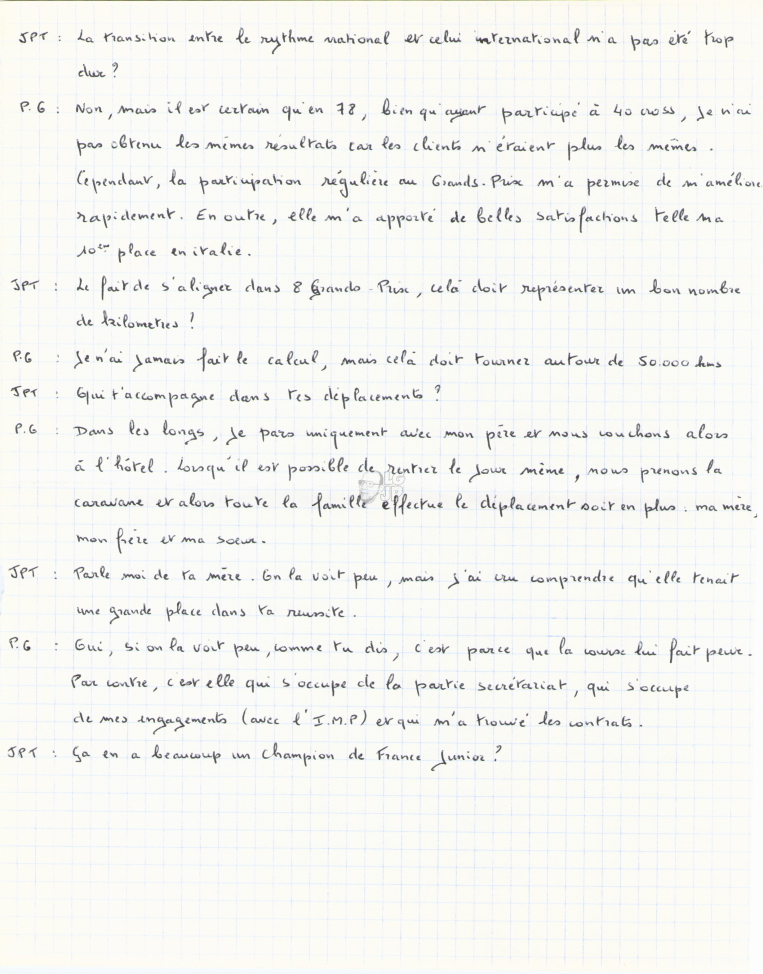 JPT : La transition entre le rythme national et celui international n'a pas été trop
dur ?
P.G : Non, mais il est certain qu'en 78, bien qu'ayant participé à 40 cross, je n'ai
pas obtenu les mêmes résultats car les clients n'étaient plus les mêmes.
Cependant, la participation régulière au Grands-Prix m'a permise de m'améliorer
rapidement. En outre, elle m'a apporté de belles satisfactions telle ma
10ème place en italie.
JPT : Le fait de s'aligner dans 8 Grands-Prix, celà doit représenter un bon nombre
de kilometres !
P.G : Je n'ai jamais fait le calcul, mais celà doit tourner autour de 50.000 kms
JPT : Qui t'accompagne dans tes déplacements ?
P.G : Dans les longs, je pars uniquement avec mon père et nous couchons alors
à l'hôtel. Lorsqu'il est possible de rentrer le jour même, nous prenons la
caravane et alors toute la famille effectue le déplacement soit en plus : ma mère,
mon frère et ma soeur.
JPT : Parle moi de ta mère. On la voit peu, mais j'ai cru comprendre qu'elle tenait
une grande place dans ta reussite.
P.G : Oui, si on la voit peu, comme tu dis, c'est parce que la course lui fait peur.
Par contre, c'est elle qui s'occupe de la partie secrétariat, qui s'occupe
de mes engagements (avec l'I.M.P) et qui m'a trouvé les contrats.
JPT : Ça en a beaucoup un Champion de France Junior ?
LG
JP